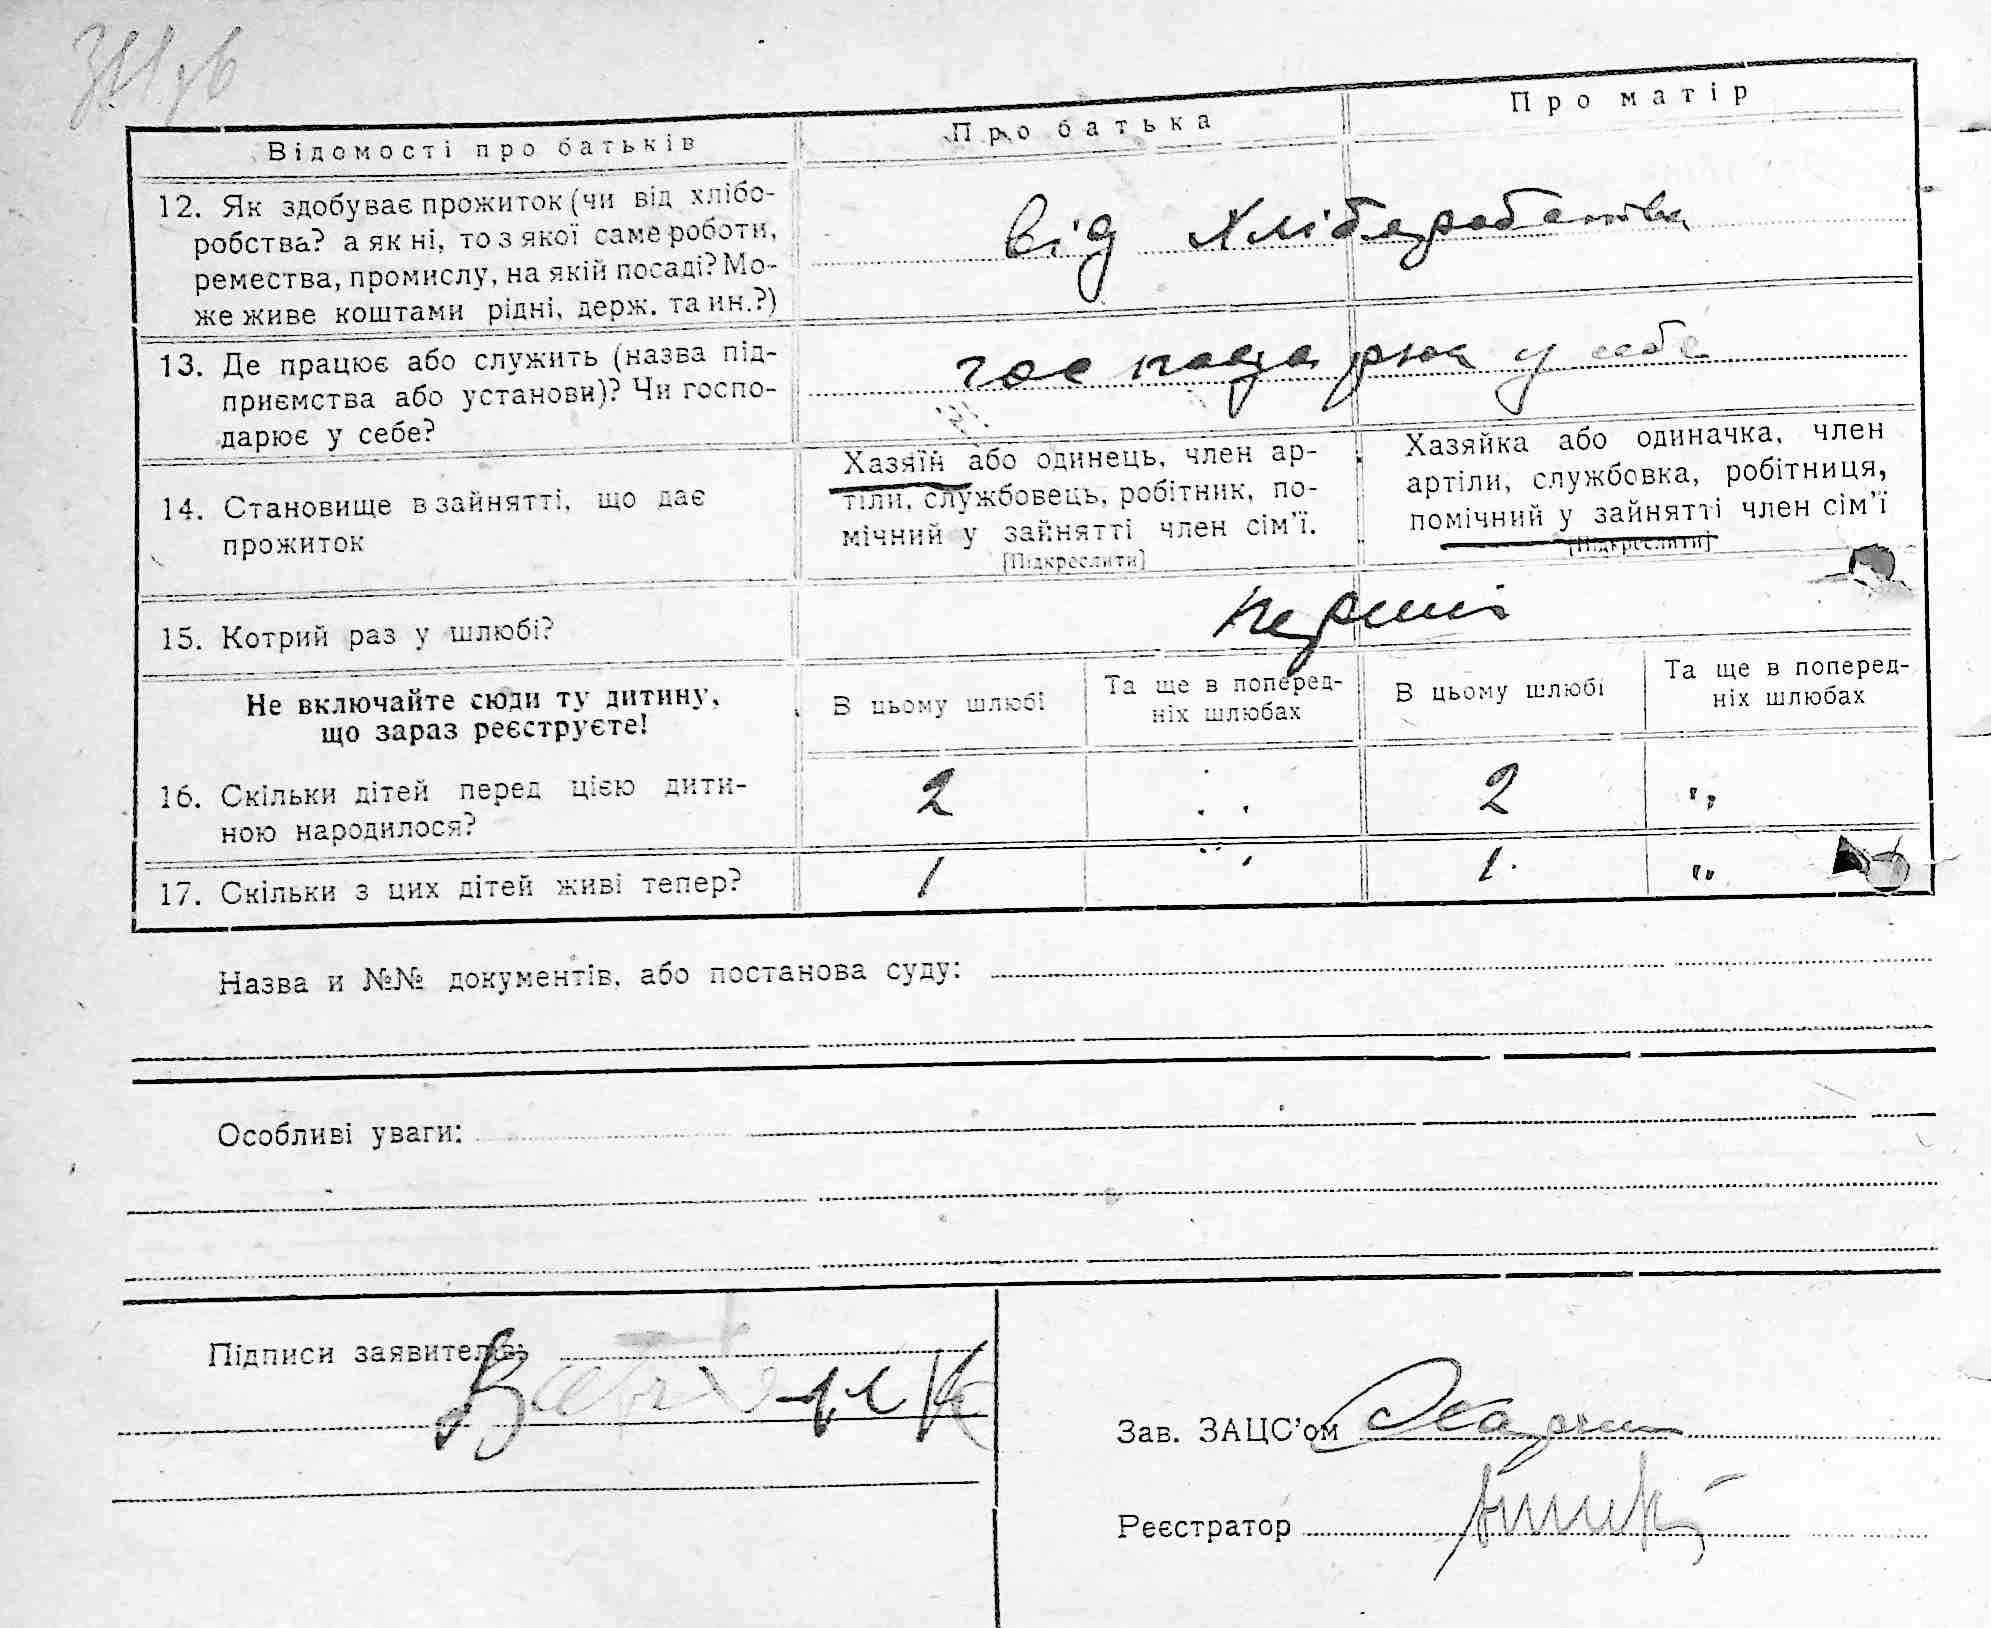 Відомості про батьків Про батька Про матір
12. Як здобуває прожиток (чи від хлібо-
робства? а як ні, то з якої саме роботи,
ремества, промислу, на якій посаді? Мо-
же живе коштами рідні, держ. та ин.?)
від хліборобства
13. Де працює або служить (назва під-
приємства або установи)? Чи госпо-
дарює у себе?
господарює у себе
14. Становище в зайнятті, що дає
прожиток
Хазяїн або одинець, член ар-
тіли, службовець, робітник, по-
мічний у зайнятті член сім'ї.
[Підкреслити]
Хазяйка або одиначка, член
артіли, службовка, робітниця,
помічний у зайнятті член сім'ї
[Підкреслити]
15. Котрий раз у шлюбі?
перший
Не включайте сюди ту дитину,
що зараз реєструєте!
В цьому шлюбі
Та ще в поперед-
ніх шлюбах
В цьому шлюбі
Та ще в поперед-
ніх шлюбах
16. Скільки дітей перед цією дити-
ною народилося?
2 " 2 "
17. Скільки з цих дітей живі тепер? 1 " 1. "
Назва и №№ документів, або постанова суду:
Особливі уваги:
Підписи заявителів:
Зав. ЗАЦС'ом
Реєстратор